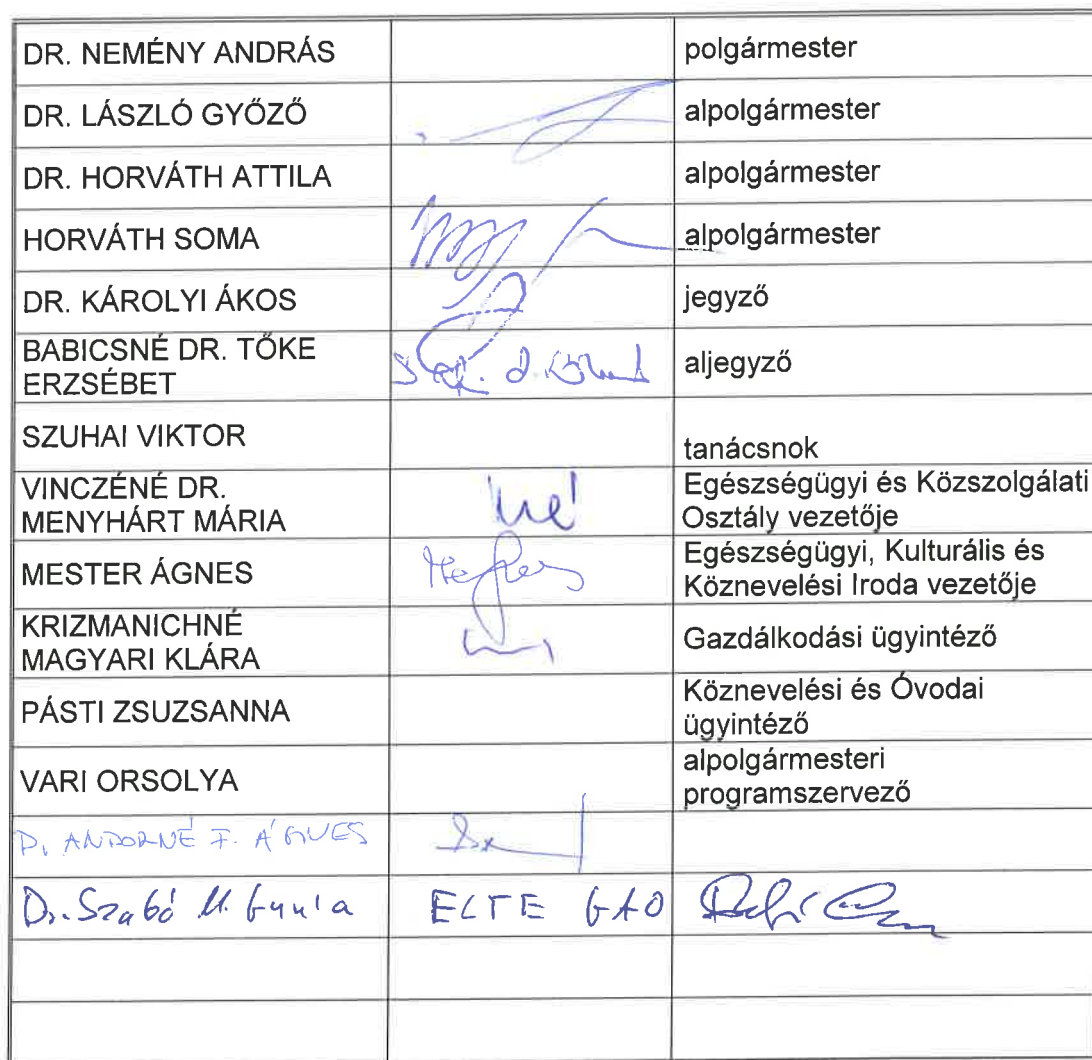 DR. NEMÉNY ANDRÁS polgármester
DR. LÁSZLÓ GYŐZŐ alpolgármester
DR. HORVÁTH ATTILA alpolgármester
HORVÁTH SOMA alpolgármester
DR. KÁROLYI ÁKOS jegyző
BABICSNÉ DR. TŐKE
ERZSÉBET
aljegyző
SZUHAI VIKTOR tanácsnok
VINCZÉNÉ DR.
MENYHÁRT MÁRIA
Egészségügyi és Közszolgálati
Osztály vezetője
MESTER ÁGNES
Egészségügyi, Kulturális és
Köznevelési Iroda vezetője
KRIZMANICHNÉ
MAGYARI KLÁRA
Gazdálkodási ügyintéző
PÁSTI ZSUZSANNA
Köznevelési és Óvodai
ügyintéző
VARI ORSOLYA
alpolgármesteri
programszervező
D. ANDORNÉ F. ÁGNES
Dr. Szabó M. ELTE